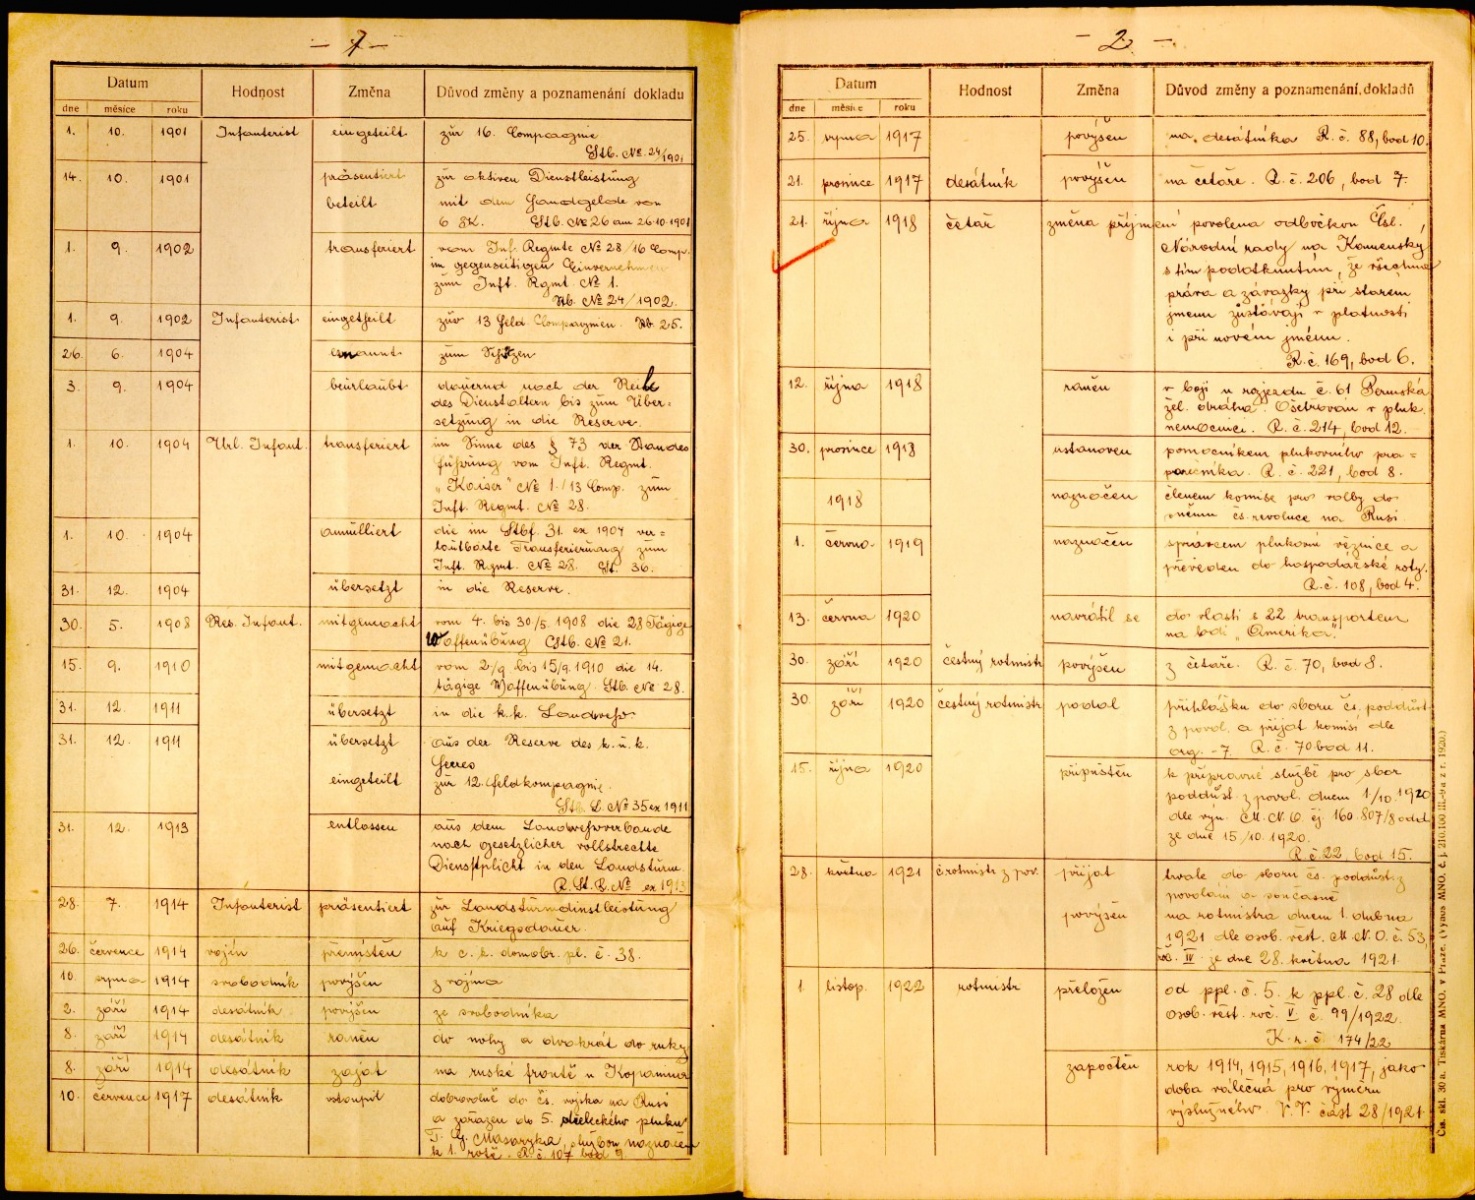 – 1 –
Datum Hodnost Změna Důvod změny a poznamenání dokladu
dne měsíce roku
1. 10. 1901 Infanterist eingeteilt zür 16. Compagnie
Stb. No. 24/1901
14. 10. 1901 präsentiert zür aktiven Dienstleistüng
beteilt mit dem Handgelde von
6 SK. Stb. No 26 am 26.10.1901
1. 9. 1902 transferiert vom Inf. Regmte No 28/16 Comp.
im gegenseitigen Einvernehmen
züm Inft. Rgmt. No 1.
Stb. No 24/1902.
1. 9. 1902 Infanterist eingetheilt zür 13 Feld Compagnien. Stb. 25.
26. 6. 1904 ernannt züm Schützen
3. 9. 1904 beürlaübt daüernd nach der Reihe
des Dienstaltern bis züm Über=
setzüng in die Reserve.
1. 10. 1904 Url. Infant. transferiert im Sinne des § 73 der Standes
führüng vom Inft. Regmt.
"Kaiser" No 1./13 Comp. züm
Inft. Regmt. No 28.
1. 10. 1904 annülliert die im Stbf. 31. ex 1904 ver=
laütbarte Transferierüng züm
Inft. Rgmt. No 28. St. 36.
31. 12. 1904 übersetzt in die Reserve.
30. 5. 1908 Res. Infant. mitgemacht vom 4. bis 30/5. 1908 die 28 Tägige
Waffenübüng Stb. No 21.
15. 9. 1910 mitgemacht vom 2/9 bis 15/9. 1910 die 14.
tägige Waffenübüng. Stb. No 28.
31. 12. 1911 übersetzt in die k.k. Landwehr
31. 12. 1911 übersetzt aüs der Reserve des k. ü. k.
Heeres
eingeteilt zür 12. Feldkompagnie.
St. B. No 35 ex 1911
31. 12. 1913 entlassen aüs dem Landwehrverbande
nach gesetzlicher vollstreckte
Dienstplicht in den Landstürm
R. St. B. No ex 1913
28. 7. 1914 Infanterist präsentiert zür Landstürmdinstleistüng
aüf Kriegsdaüer.
26. července 1914 vojín přemístěn k c. k. domobr. pl. č. 38.
10. srpna 1914 svobodník povýšen z vojína
2. září 1914 desátník povýšen ze svobodníka
8. září 1914 desátník raněn do nohy a dvakrát do ruky
8. září 1914 desátník zajat na ruské frontě u
10. července 1917 desátník vstoupil dobrovolně do čs. vojska na Rusi
a zařazen do 5. střeleckého pluku
T. G. Masaryka, službou naznačen
k 1. rotě. R. č. 107 bod 9
– 2. –
Datum Hodnost Změna Důvod změny a poznamenání dokladů
dne měsíce roku
25. srpna 1917 povýšen na desátníka R. č. 88, bod 10.
21. prosince 1917 desátník povýšen na četaře. R. č. 206, bod 7.
21. října 1918 četař změna příjmení povolena odbočkou Čsl.
Národní rady na Komenský
s tím podotknutím, že všechna
práva a závazky při starém
jmenu zůstávají v platnosti
i při novém jménu.
R. č. 169, bod 6.
12. října 1918 raněn v boji u rozjezdu č. 61 Permská
žel. dráha. Ošetřován v pluk.
nemocnici. R. č. 214, bod 12.
30. prosince 1918 ustanoven pomocníkem plukovního pra=
porečníka. R. č. 221, bod 8.
1918 naznačen členem komise pro volby do
čs. revoluce na Rusi
1. června 1919 naznačen správcem plukovní věznice a
převeden do hospodářské roty.
R. č. 108, bod 4.
13. června 1920 navrátil se do vlasti s 22 transportem
na lodi "Amerika".
30. září 1920 čestný rotmistr povýšen z četaře. R. č. 70, bod 8.
30. září 1920 čestný rotmistr podal přihlášku do sboru čs. poddůst.
z povol. a přijat komisí dle
org. – 7. R. č. 70 bod 11.
15. října 1920 připuštěn k přípravné službě pro sbor
poddůst. z povol. dnem 1/10. 1920
dle výn. M. N. O. čj. 160.807/8 odd.
ze dne 15/10. 1920.
R. č. 22, bod 15.
28. května 1921 č. rotmistr z pov. přijat trvale do sboru čs. poddůst. z
povolání a současně
povýšen na rotmistra dnem 1. dubna
1921 dle osob. věst. M. N. O. č. 53,
roč. IV. ze dne 28. května 1921.
1 listop. 1922 rotmistr přeložen od ppl. č. 5. k ppl. č. 28 dle
osob. věst. roč. V č. 99/1922.
K. r. č. 174/22
započtěn rok 1914, 1915, 1916, 1917, jako
doba válečná pro výměru
výslužného. V. V. část 28/1921.
Čís. skl. 30 a. Tiskárna MNO. v Praze. (Výnos MNO. č. j. 210.100 III.-9a z r. 1920.)